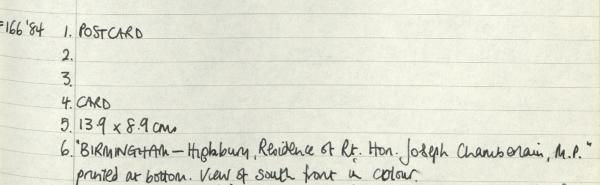 F166'84 1. POSTCARD
2.
3.
4. CARD
5. 13.9 x 8.9 cms
6. "BIRMINGHAM – Highbury, Residence of Rt. Hon. Joseph Chamberlain, M.P."
printed at bottom. View of south front in colour.